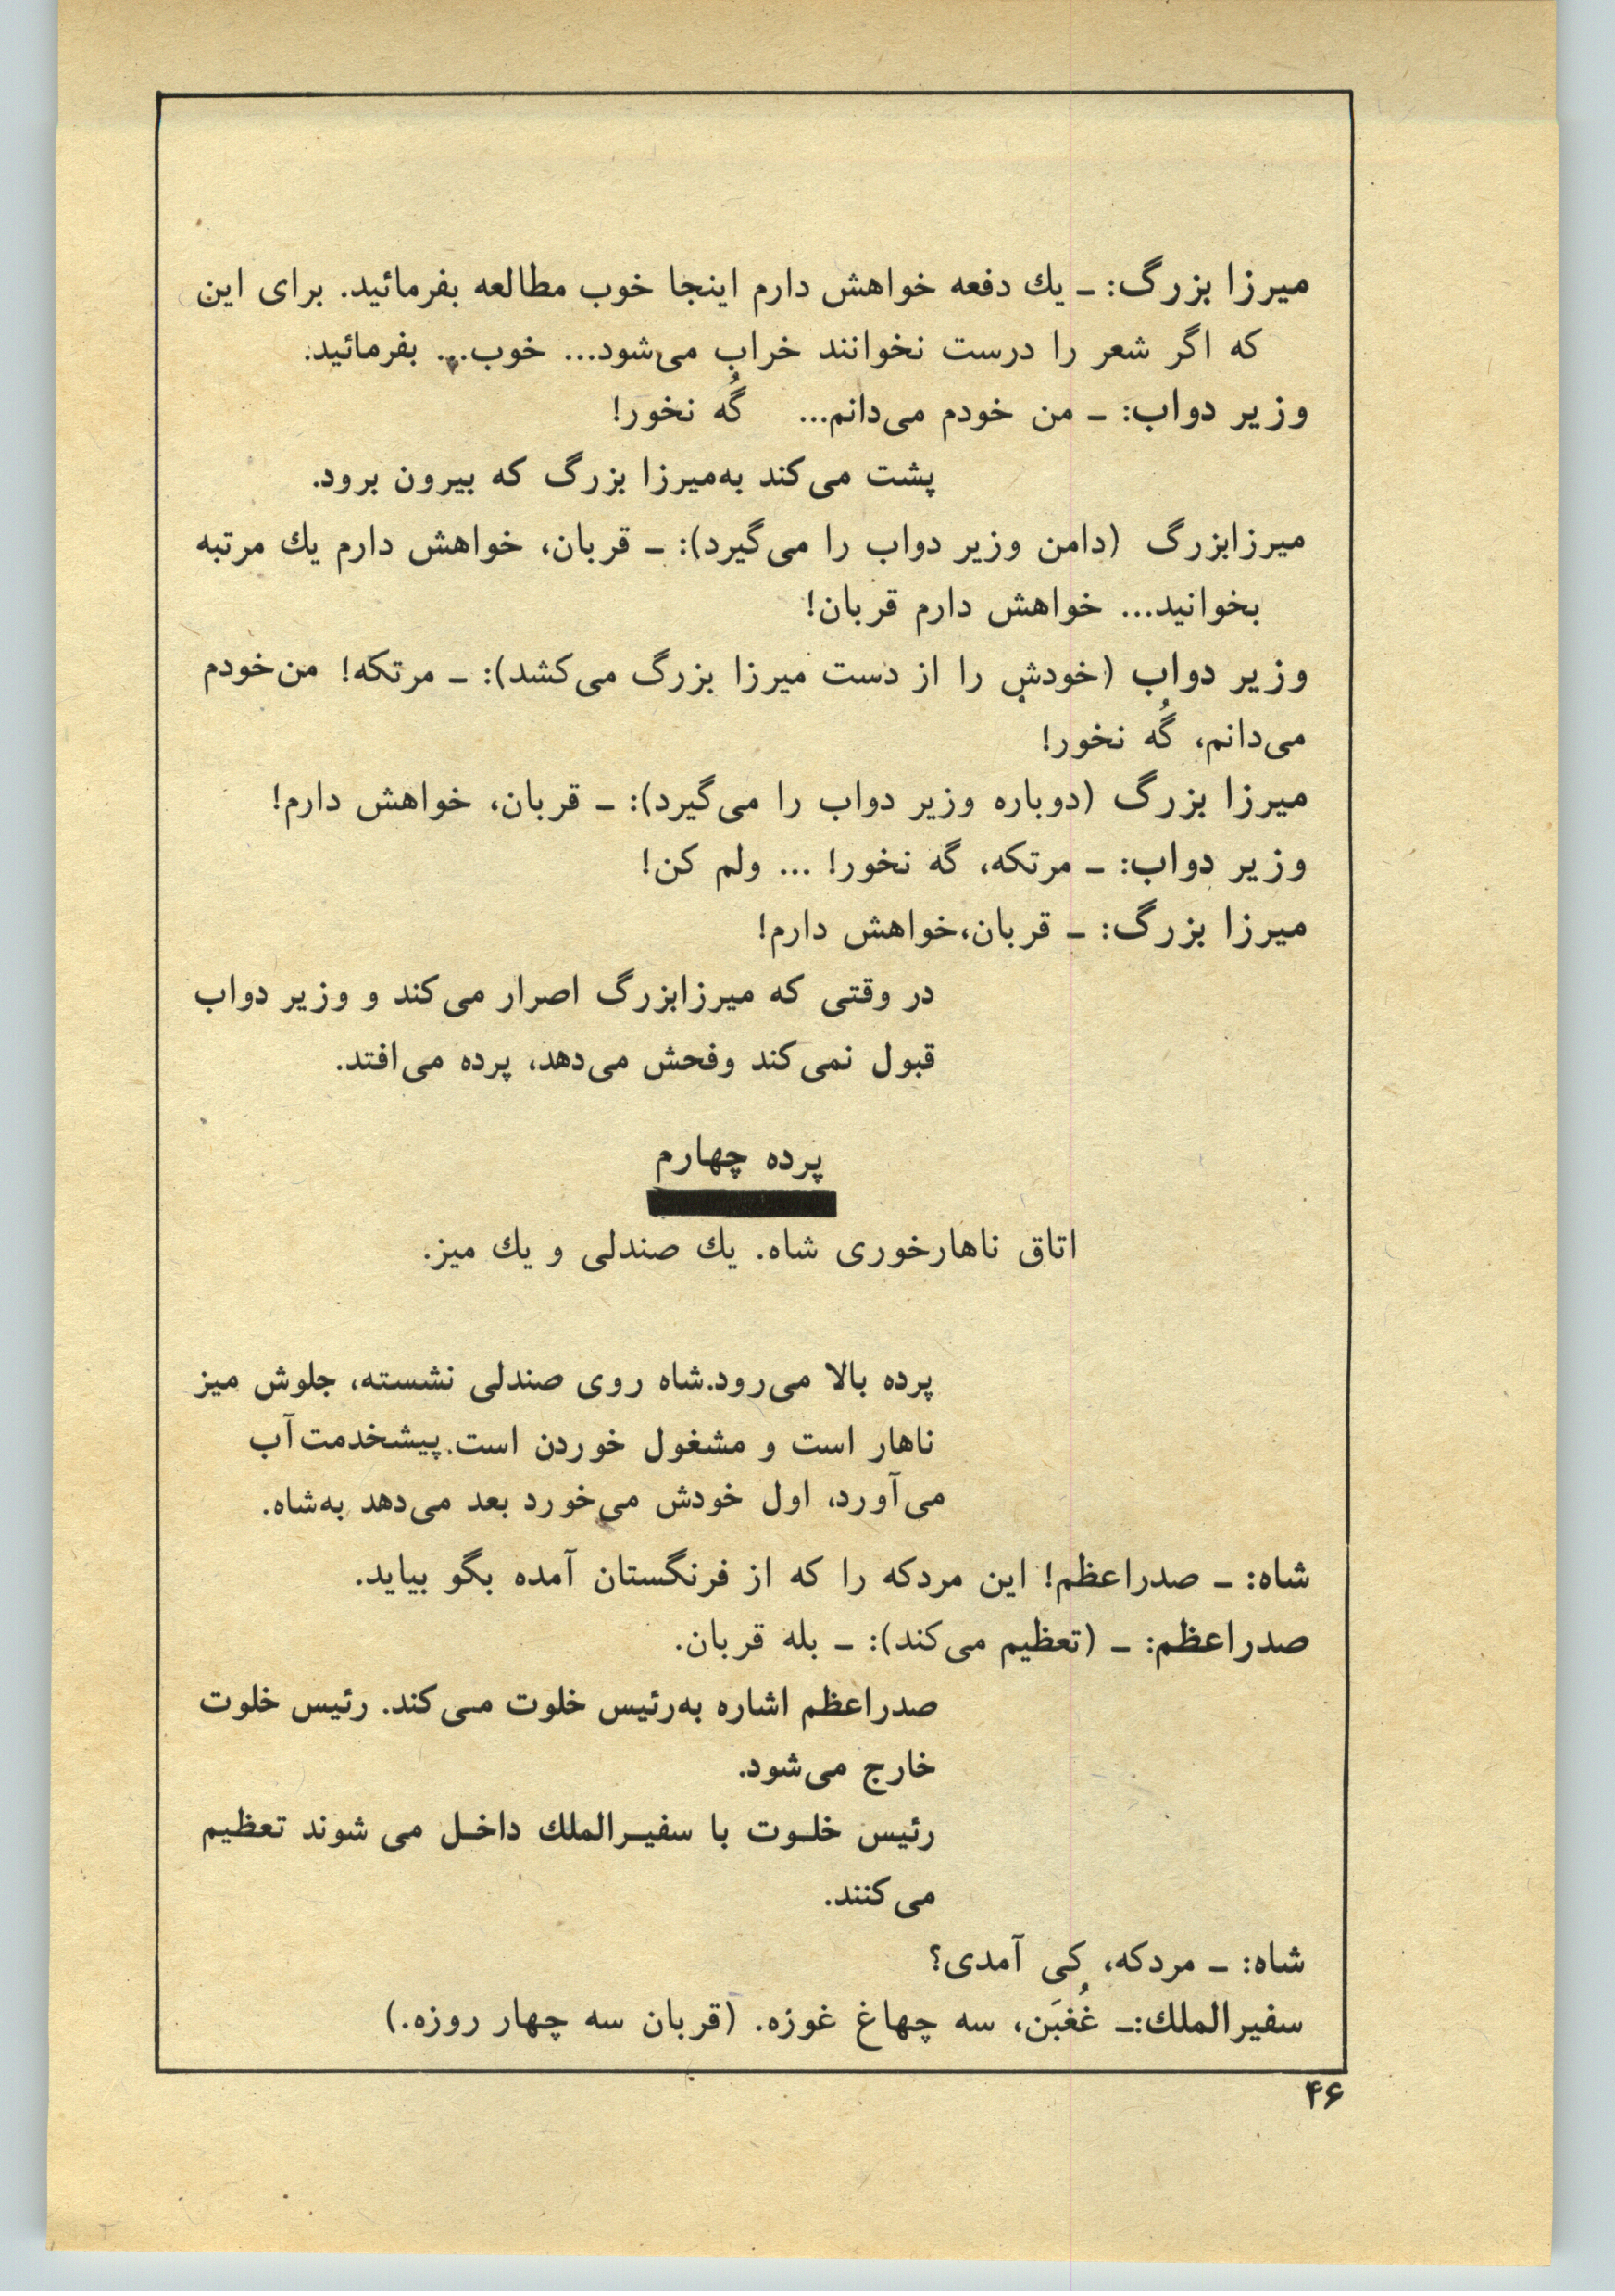 میرزا بزرگ: ـ یك دفعه خواهش دارم اینجا خوب مطالعه بفرمائید. برای این
که اگر شعر را درست نخوانند خراب می‌شود... خوب... بفرمائید.
وزیر دواب: ـ من خودم می‌دانم... گُه نخور!
پشت می‌کند به‌میرزا بزرگ که بیرون برود.
میرزابزرگ (دامن وزیر دواب را می‌گیرد): ـ قربان، خواهش دارم یك مرتبه
بخوانید... خواهش دارم قربان!
وزیر دواب (خودش را از دست میرزا بزرگ می‌کشد): ـ مرتکه! من‌خودم
می‌دانم، گُه نخور!
میرزا بزرگ (دوباره وزیر دواب را می‌گیرد): ـ قربان، خواهش دارم!
وزیر دواب: ـ مرتکه، گه نخور! ... ولم کن!
میرزا بزرگ: ـ قربان،خواهش دارم!
در وقتی که میرزابزرگ اصرار می‌کند و وزیر دواب
قبول نمی‌کند وفحش می‌دهد، پرده می‌افتد.
پرده چهارم
اتاق ناهارخوری شاه. یك صندلی و یك میز.
پرده بالا می‌رود.شاه روی صندلی نشسته، جلوش میز
ناهار است و مشغول خوردن است.پیشخدمت‌آب
می‌آورد، اول خودش می‌خورد بعد می‌دهد به‌شاه.
شاه: ـ صدراعظم! این مردکه را که از فرنگستان آمده بگو بیاید.
صدراعظم: ـ (تعظیم می‌کند): ـ بله قربان.
صدراعظم اشاره به‌رئیس خلوت می‌کند. رئیس خلوت
خارج می‌شود.
رئیس خلـوت با سفیـرالملك داخـل می شوند تعظیم
می‌کنند.
شاه: ـ مردکه، کی آمدی؟
سفیرالملك:ـ غُغبَن، سه چهاغ غوزه. (قربان سه چهار روزه.)
۴۶